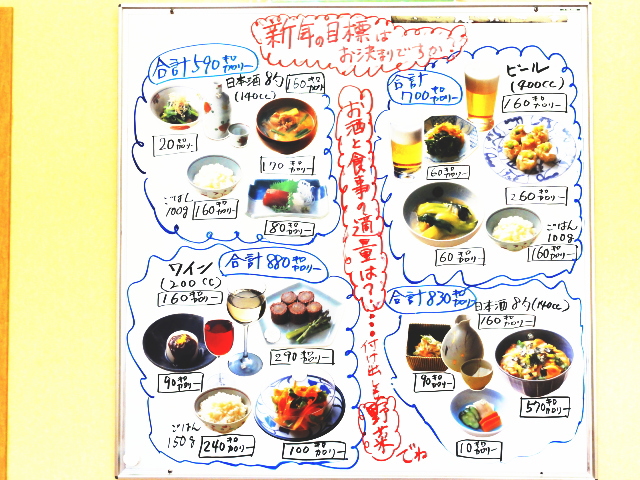 新年の目標は
お決まりですか!
合計590キロカロリー
日本酒8勺
(140cc)
160キロカロリー
20キロカロリー
170キロカロリー
ごはん
100g
160キロカロリー
80キロカロリー
お酒と食事の適量は?!…付け出しを野菜でね
合計
700キロカロリー
ビール
(400cc)
160キロカロリー
60キロカロリー
260キロカロリー
60キロカロリー
ごはん
100g
160キロカロリー
合計880キロカロリー
ワイン
(200cc)
160キロカロリー
90キロカロリー
290キロカロリー
ごはん
150g
240キロカロリー
100キロカロリー
合計830キロカロリー
日本酒8勺(140cc)
160キロカロリー
90キロカロリー
570キロカロリー
10キロカロリー